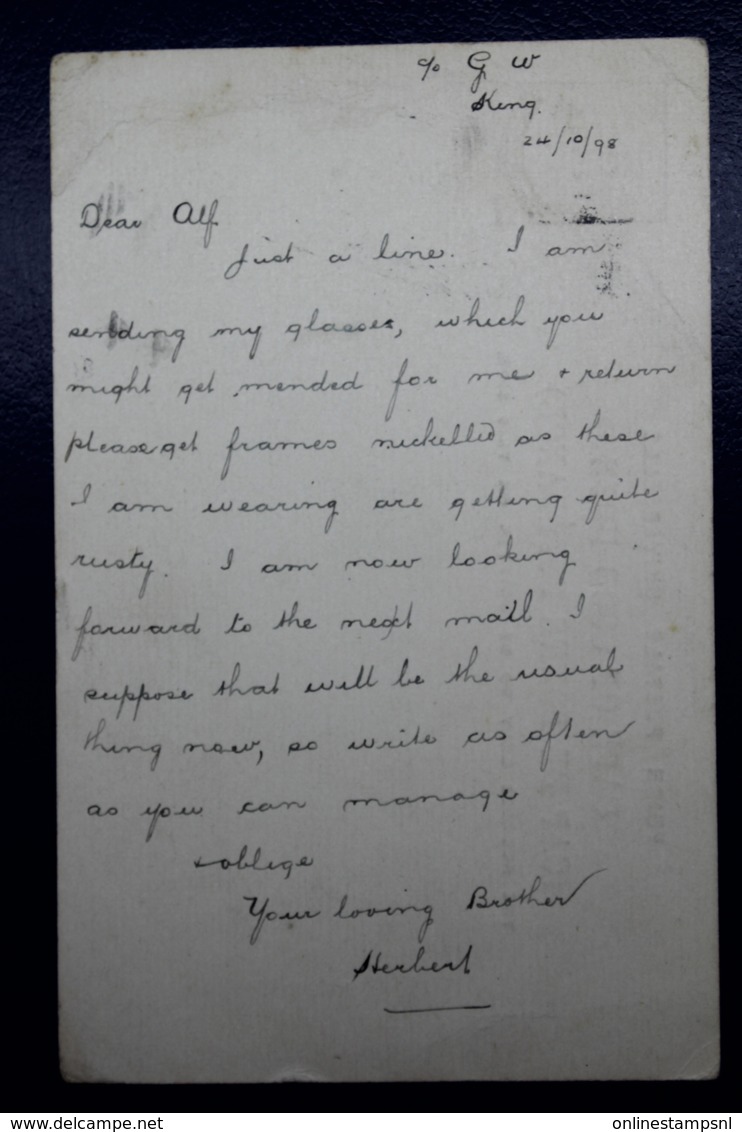 c/o G W
King.
24/10/98
Dear Alf
Just a line. I am
sending my glasses, which you
might get mended for me + return
please get frames nickelled as these
I am wearing are getting quite
rusty. I am now looking
forward to the next mail. I
suppose that will be the usual
thing now, so write as often
as you can manage
+ oblige
Your loving Brother
Herbert
onlinestampsnl